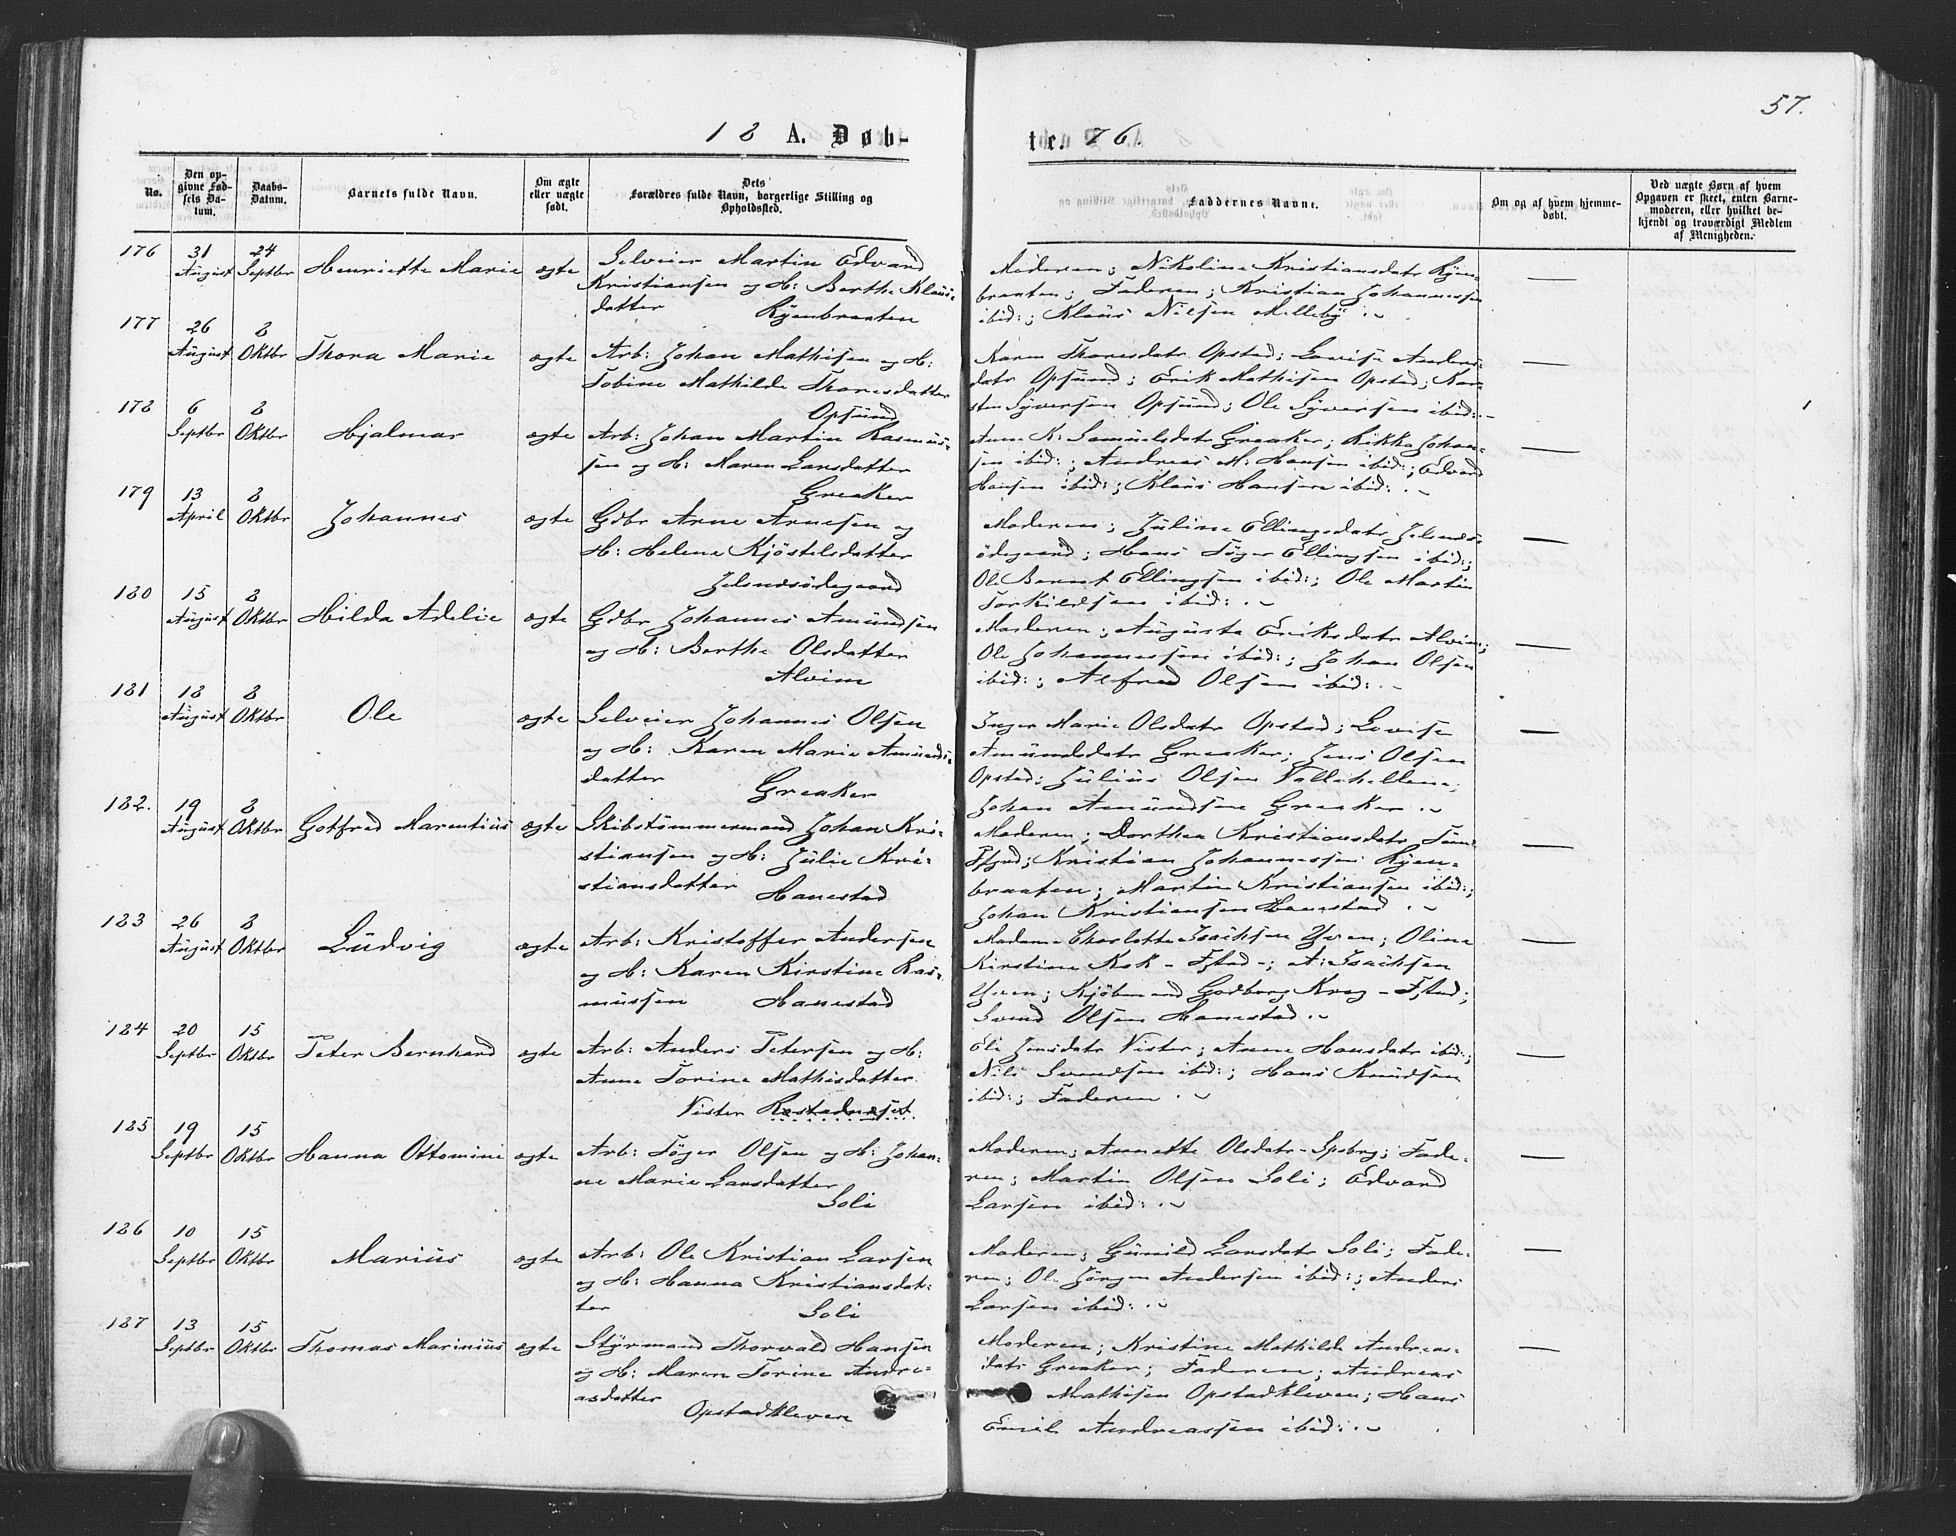 57.
18 A. Døb-
te. 76.
No.
Den op-
givne Fød-
sels Da-
tum.
Daabs-
Datum.
Barnets fulde Navn.
Om ægte
eller uægte
født.
Dets
Forældres fulde Navn, borgerlige Stilling og
Opholdssted.
Faddernes Navne.
Om og af hvem hjemme-
døbt.
Ved uægte Børn af hvem
Opgaven er skeet, enten Barne-
moderen, eller hvilket be-
kjendt og troværdigt Medlem
af Menigheden.
176
31 August
24 Septbr
Henriette Marie
ægte
Selveier Martin Edvard
Kristiansen og H: Berthe Klaus-
datter Ryenbraaten
Moderen; Nikoline Kristiansdatr Ryen-
braaten; Faderen; Kristian Johannessen
ibid:; Klaus Nilsen Melleby.
177
26 August
8 Oktbr
Thora Marie
ægte
Arb: Johan Mathisen og H:
Tobine Mathilde Thoresdatter
Opsund
Karen Thoresdatr Opstad; Lovise Anders-
datr Opsund; Erik Mathisen Opstad; Kar-
sten Syversen Opsund; Ole Syversen ibid:
178
6 Septbr
8 Oktbr
Hjalmar
ægte
Arb: Johan Martin Rasmus-
sen og H: Maren Larsdatter
Greaker
Anne K: Samuelsdatr Greaker; Rikka Johan-
sen ibid:; Andreas M: Hansen ibid:; Edvard
Hansen ibid:; Klaus Hansen ibid:
179
13 April
8 Oktbr
Johannes
ægte
Gdbr Arne Arnesen og
H: Helene Kjöstelsdatter
Jelsnesødegaard
Moderen; Juline Ellingsdatr Jelsnes-
ødegaard; Hans Töger Ellingsen ibid:;
Ole Bernt Ellingsen ibid:; Ole Martin
Torkildsen ibid:
180
15 August
8 Oktbr
Hilda Adelie
ægte
Gdbr Johannes Amundsen
og H: Berthe Olsdatter
Alvim
Moderen; Augusta Eriksdatr Alvim;
Ole Johannessen ibid:; Johan Olsen
ibid:; Alfred Olsen ibid:
181
18 August
8 Oktbr
Ole
ægte
Selveier Johannes Olsen
og H: Karen Marie Amunds-
datter Greaker
Inger Marie Olsdatr Opstad; Lovise
Amundsdatr Greaker; Jens Olsen
Opstad; Julius Olsen Vallehellene;
Johan Amundsen Greaker
182.
19 August
8 Oktbr
Gotfred Marentius
ægte
Skibstømmermand Johan Kri-
stiansen og H: Julie Kri-
stiansdatter Hanestad
Moderen; Dorthea Kristiansdatr
Kristian Johannessen Ryen-
braaten; Martin Kristiansen ibid:;
Johan Kristiansen Hanestad
183
26 August
8 Oktbr
Ludvig
ægte
Arb: Kristoffer Andersen
og H: Karen Kirstine Ras-
mussen Hanestad
Madame Charlotte Isachsen Yven; Oline
Kirstine Kok - Fstad -; A: Isachsen
Yven; Kjöbmand Godborg Krog - Fstad;
Svend Olsen Hanestad
184
20 Septbr
15 Oktbr
Peter Bernhard
ægte
Arb: Anders Petersen og H:
Anne Torine Mathisdatter
Vister Rostadneset
Eli Jensdatr Vister; Anne Hansdatr ibid:;
Nils Svendsen ibid:; Hans Knudsen
ibid:; Faderen
185
19 Septbr
15 Oktbr
Hanna Ottomine
ægte
Arb: Töger Olsen og H: Johan-
ne Marie Larsdatter
Soli
Moderen; Annette Olsdatr - Spsbrg; Fade-
ren; Martin Olsen Soli; Edvard
Larsen ibid:
186
10 Septbr
15 Oktbr
Marius
ægte
Arb: Ole Kristian Larsen
og H: Hanna Kristiansdat-
ter Soli
Moderen; Gunild Larsdatr Soli; Fade-
ren; Ole Jörgen Andersen ibid:; Anders
Larsen ibid:
187
13 Septbr
15 Oktbr
Thomas Marinius
ægte
Styrmand Thorvald Hansen
og H: Maren Torine Andre-
asdatter Opstadkleven
Moderen; Kristine Mathilde Andreas-
datr Greaker; Faderen; Andreas
Mathisen Opstadkleven; Hans
Emil Andreassen ibid: